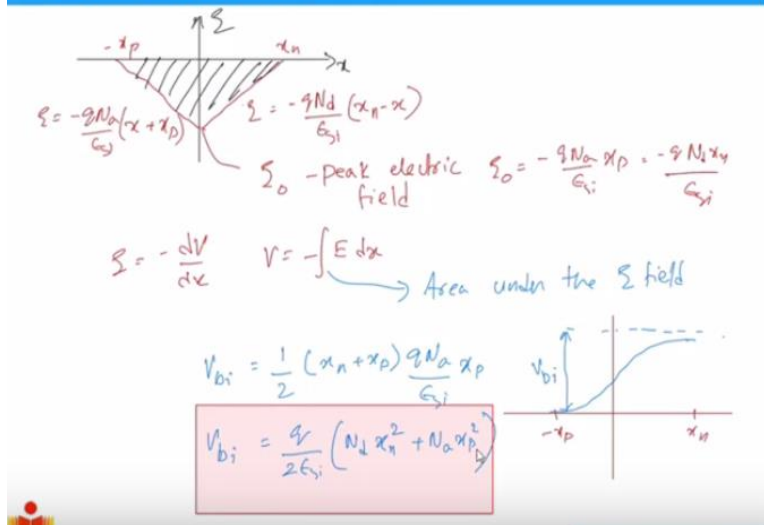 ξ
-xp xn
x
ξ = -qNa/εsi (x + xp) ξ = -qNd/εsi (xn - x)
ξ0 - peak electric field ξ0 = -qNa/εsi xp = -qNd xn/εsi
ξ = -dV/dx V = -∫E dx
Area under the ξ field
Vbi = 1/2 (xn + xp) qNa/εsi xp
Vbi
Vbi = q/2εsi (Nd xn² + Na xp²)
-xp xn